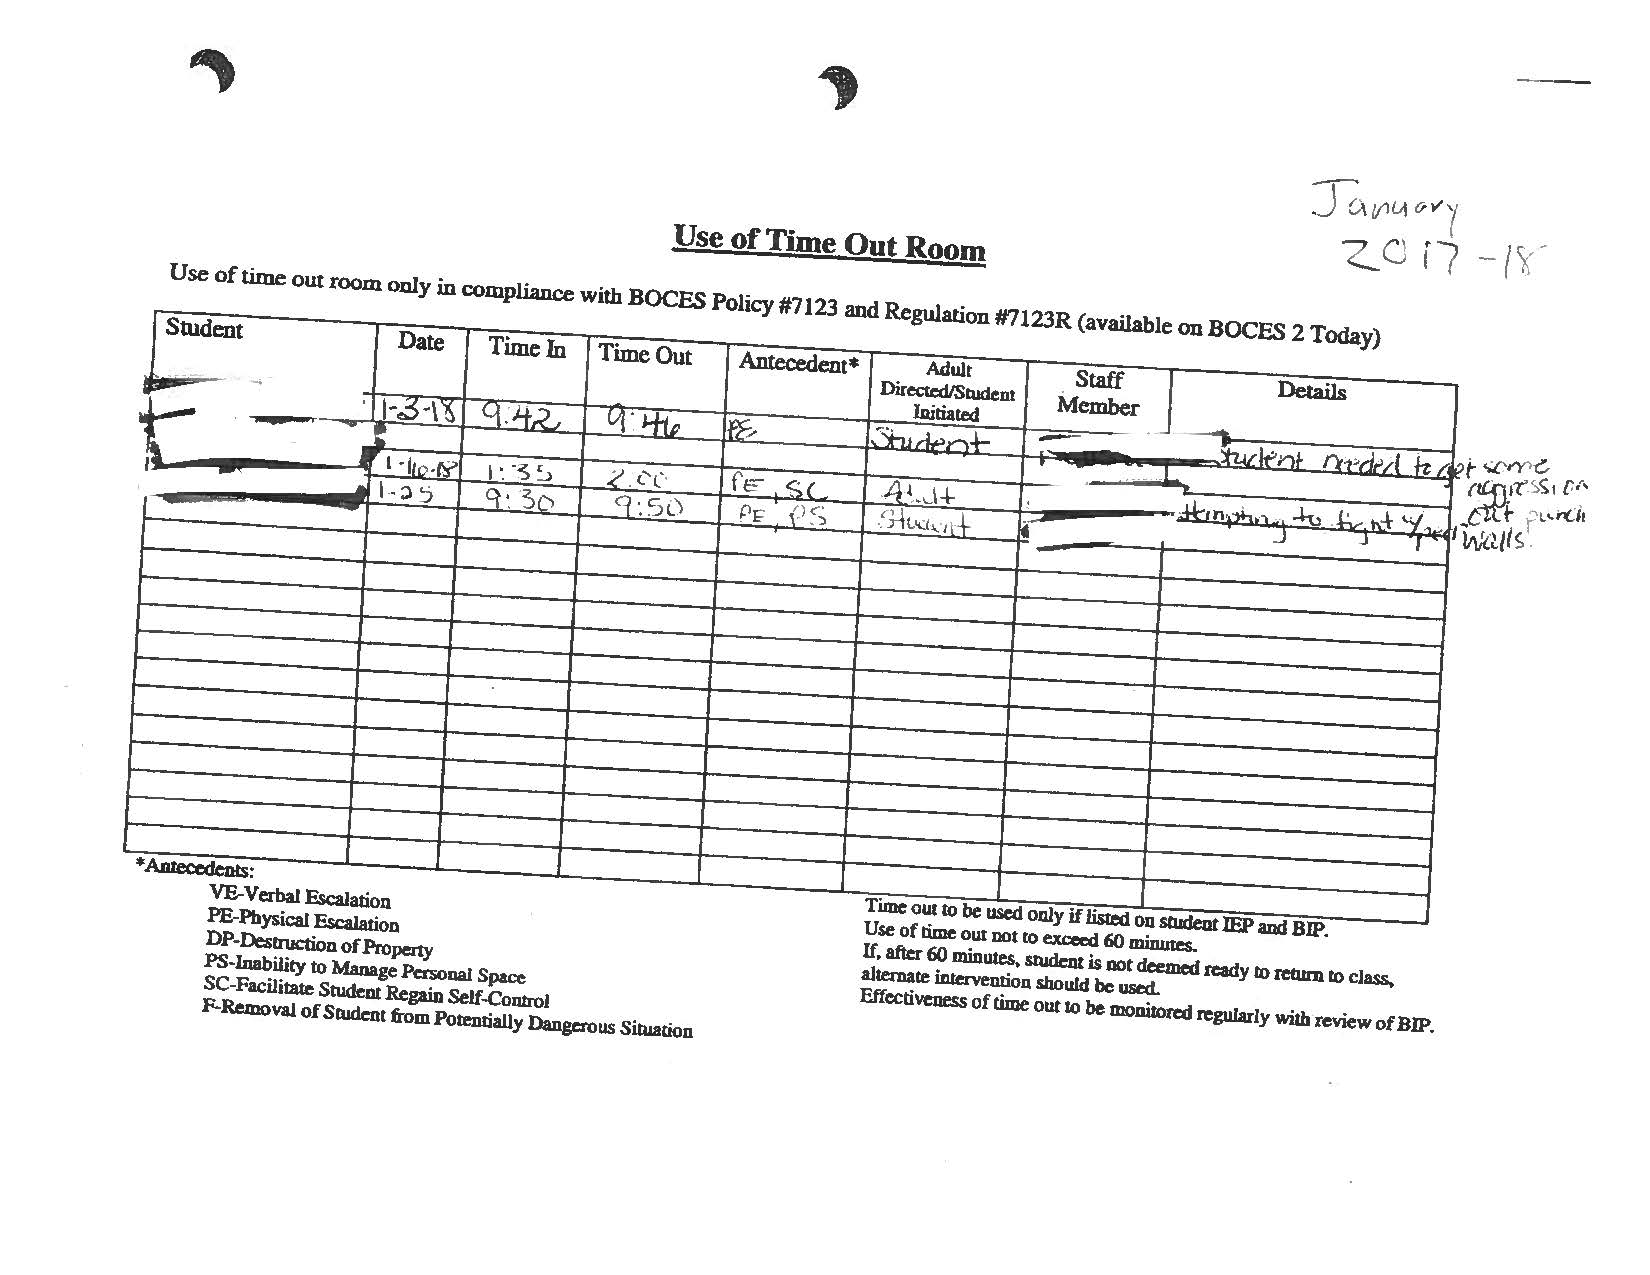 January
2017-18
Use of Time Out Room
Use of time out room only in compliance with BOCES Policy #7123 and Regulation #7123R (available on BOCES 2 Today)
Student Date Time In Time Out Antecedent* Adult Directed/Student Initiated Staff Member Details
1-3-18 9:42 9:46 PE Student Student needed to get some aggression out punch walls.
1-16-18 1:35 2:00 PE, SC Adult
1-25 9:30 9:50 PE, PS Student to fight
*Antecedents:
VE-Verbal Escalation
PE-Physical Escalation
DP-Destruction of Property
PS-Inability to Manage Personal Space
SC-Facilitate Student Regain Self-Control
F-Removal of Student from Potentially Dangerous Situation
Time out to be used only if listed on student IEP and BIP.
Use of time out not to exceed 60 minutes.
If, after 60 minutes, student is not deemed ready to return to class,
alternate intervention should be used.
Effectiveness of time out to be monitored regularly with review of BIP.